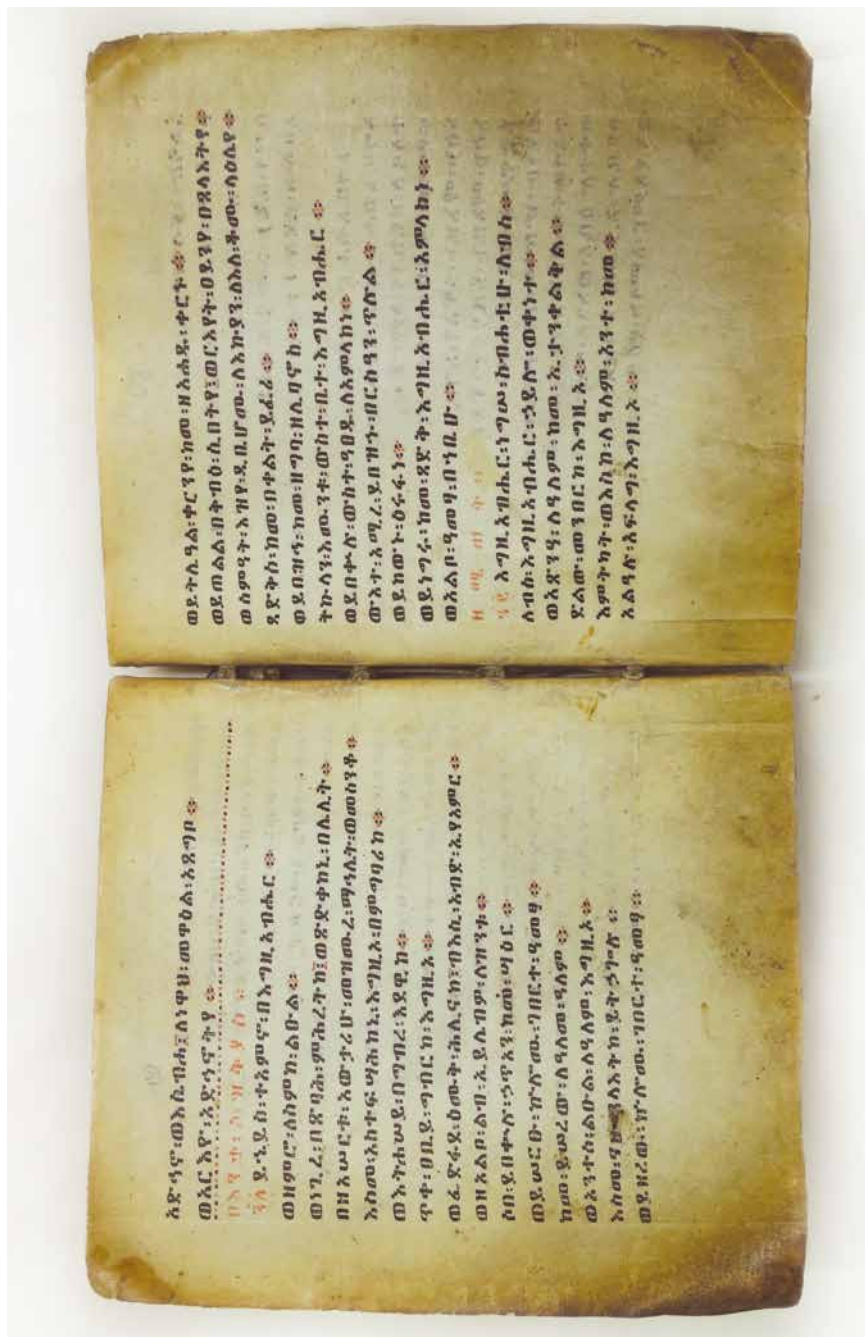 አድኅኖ፡ወእሴብሖ፤ለነዋኅ፡መዋዕል፡አጸግቦ ።
ወአርእዮ፡አድኅኖትየ ።
በእንተ፡ሕዝቅያስ ።
፺፩ ይኄይስ፡ተአምኖ፡በእግዚአብሔር ።
ወዘምሮ፡ለስምከ፡ልዑል ።
ወነጊረ፡በጽባሕ፡ምሕረትከ፤ወጽድቀከኒ፡በሌሊት ።
በዘአሠርቱ፡አውታሪሁ፡መዝሙረ፡ማኅሌት፡ወመሰንቆ ።
እስመ፡አስተፍሣሕከኒ፡እግዚኦ፡በምግባሪከ
ወእትሐሠይ፡በግብረ፡እደዊከ ።
ጥቀ፡ዐቢይ፡ግብርከ፡እግዚኦ ።
ወፈድፋደ፡ዕሙቅ፡ሕሊናከ፤ብእሲ፡አብድ፡ኢየአምር ።
ወዘአልቦ፡ልብ፡ኢይሌብዎ፡ለዝንቱ ።
ሶበ፡ይበቍሉ፡ኃጥአን፡ከመ፡ሣዕር ።
ወይሠርፁ፡ኵሎሙ፡ገበርተ፡ዓመፃ ።
ከመ፡ይሠረዉ፡ለዓለመ፡ዓለም ።
ወአንተሰ፡ልዑል፡ለዓለም፡እግዚኦ ።
እስመ፡ናሁ፡ጸላእትከ፡ይትኃጐሉ ።
ወይዘረዉ፡ኵሎሙ፡ገበርተ፡ዓመፃ ።
ወይትሌዓል፡ቀርንየ፡ከመ፡ዘአሐዱ፡ቀርኑ ።
ወይጠልል፡በቅብዕ፡ሲበትየ፤ወርእየት፡ዐይንየ፡በጸላእትየ ።
ወሰምዓት፡እዝንየ፡ዲቤሆሙ፡ለእኩያን፡ለእለ፡ቆሙ፡ላዕሌየ ።
ጻድቅሰ፡ከመ፡በቀልት፡ይፈሪ ።
ወይበዝኅ፡ከመ፡ዘግባ፡ዘሊባኖስ
ትኩላን፡እሙንቱ፡ውስተ፡ቤተ፡እግዚአብሔር ።
ወይበቍሉ፡ውስተ፡ዓፀዱ፡ለአምላክነ ።
ውእተ፡አሚረ፡ይበዝኁ፡በርስዓን፡ጥሉል ።
ወይከውኑ፡ዕሩፋነ ።
ወይነግሩ፡ከመ፡ጽድቅ፡እግዚአብሔር፡አምላክነ ።
ወአልቦ፡ዓመፃ፡በኀቤሁ ።
ዘሚጠት ።
፺፪ እግዚአብሔር፡ነግሠ፡ስብሐቲሁ፡ለብሰ ።
ለብሰ፡እግዚአብሔር፡ኃይሎ፡ወቀነተ ።
ወአጽንዓ፡ለዓለም፡ከመ፡ኢታንቀልቅል ።
ድልው፡መንበርከ፡እግዚኦ ።
እምትካት፡ወእስከ፡ለዓለም፡አንተ፡ክመ ።
አልዓሉ፡አፍላግ፡እግዚኦ ።